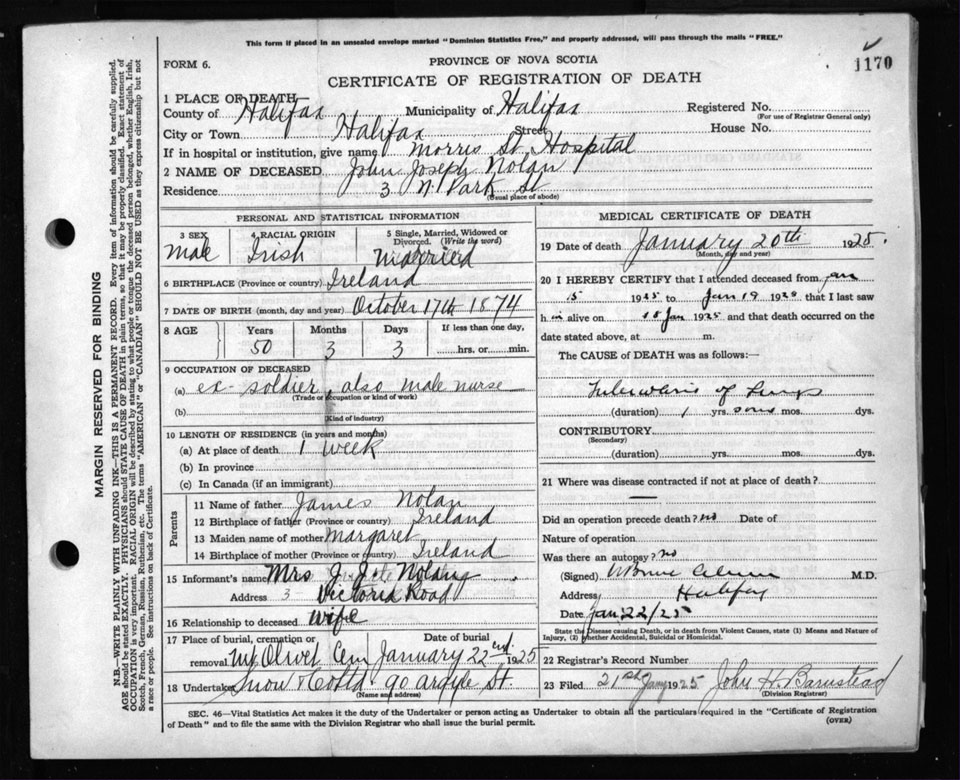 This form if placed in an unsealed envelope marked "Dominion Statistics Free," and properly addressed, will pass through the mails "FREE."
FORM 6.
PROVINCE OF NOVA SCOTIA
1170
CERTIFICATE OF REGISTRATION OF DEATH
1 PLACE OF DEATH
County of Halifax Municipality of Halifax Registered No.
(For use of Registrar General only)
City or Town Halifax Street House No.
If in hospital or institution, give name Morris St. Hospital
2 NAME OF DECEASED John Joseph Nolan
Residence 3 N. Park St
(Usual place of abode)
PERSONAL AND STATISTICAL INFORMATION
3 SEX 4 RACIAL ORIGIN 5 Single, Married, Widowed or Divorced. (Write the word)
Male Irish Married
6 BIRTHPLACE (Province or country) Ireland
7 DATE OF BIRTH (month, day and year) October 17th 1874
8 AGE Years Months Days If less than one day,
50 3 3 hrs. or min.
9 OCCUPATION OF DECEASED
(a) ex-soldier, also male nurse
(Trade or occupation or kind of work)
(b)
(Kind of industry)
10 LENGTH OF RESIDENCE (in years and months)
(a) At place of death 1 week
(b) In province
(c) In Canada (if an immigrant)
Parents
11 Name of father James Nolan
12 Birthplace of father (Province or country) Ireland
13 Maiden name of mother Margaret
14 Birthplace of mother (Province or country) Ireland
15 Informant's name Mrs J. Nolan
Address 3 Victoria Road
16 Relationship to deceased wife
17 Place of burial, cremation or removal Mt Olivet Cem Date of burial January 22nd 1925
18 Undertaker Snow & Co Ltd 90 Argyle St.
(Name and address)
MEDICAL CERTIFICATE OF DEATH
19 Date of death January 20th 1925.
(Month, day and year)
20 I HEREBY CERTIFY that I attended deceased from Jan
15 1925 to Jan 19 1920 that I last saw
h im alive on 18 Jan 1925 and that death occurred on the
date stated above, at m.
The CAUSE of DEATH was as follows:
Tuberculosis of Lungs
(duration) 1 yrs. mos. dys.
CONTRIBUTORY
(Secondary)
(duration) yrs. mos. dys.
21 Where was disease contracted if not at place of death?
Did an operation precede death? no Date of
Nature of operation
Was there an autopsy? no
(Signed) M.D.
Address Halifax
Date Jan 22/25
State the Disease causing Death, or in death from Violent Causes, state (1) Means and Nature of
Injury, (2) Whether Accidental, Suicidal or Homicidal.
22 Registrar's Record Number
23 Filed 21st Jany 1925 John H. Barnstead
(Division Registrar)
SEC. 46—Vital Statistics Act makes it the duty of the Undertaker or person acting as Undertaker to obtain all the particulars required in the "Certificate of Registration
of Death" and to file the same with the Division Registrar who shall issue the burial permit. (OVER)
MARGIN RESERVED FOR BINDING
N.B.—WRITE PLAINLY WITH UNFADING INK—THIS IS A PERMANENT RECORD. Every item of information should be carefully supplied.
AGE should be stated EXACTLY. PHYSICIANS should STATE CAUSE OF DEATH in plain terms, so that it may be properly classified. Exact statement of
OCCUPATION is very important. RACIAL ORIGIN will be described by stating to what people or tongue the deceased person belonged, whether English, Irish,
Scotch, French, German, Russian, Ruthenian, etc. The terms "AMERICAN" or "CANADIAN" SHOULD NOT BE USED as they express citizenship but not
a race or people. See instructions on back of Certificate.